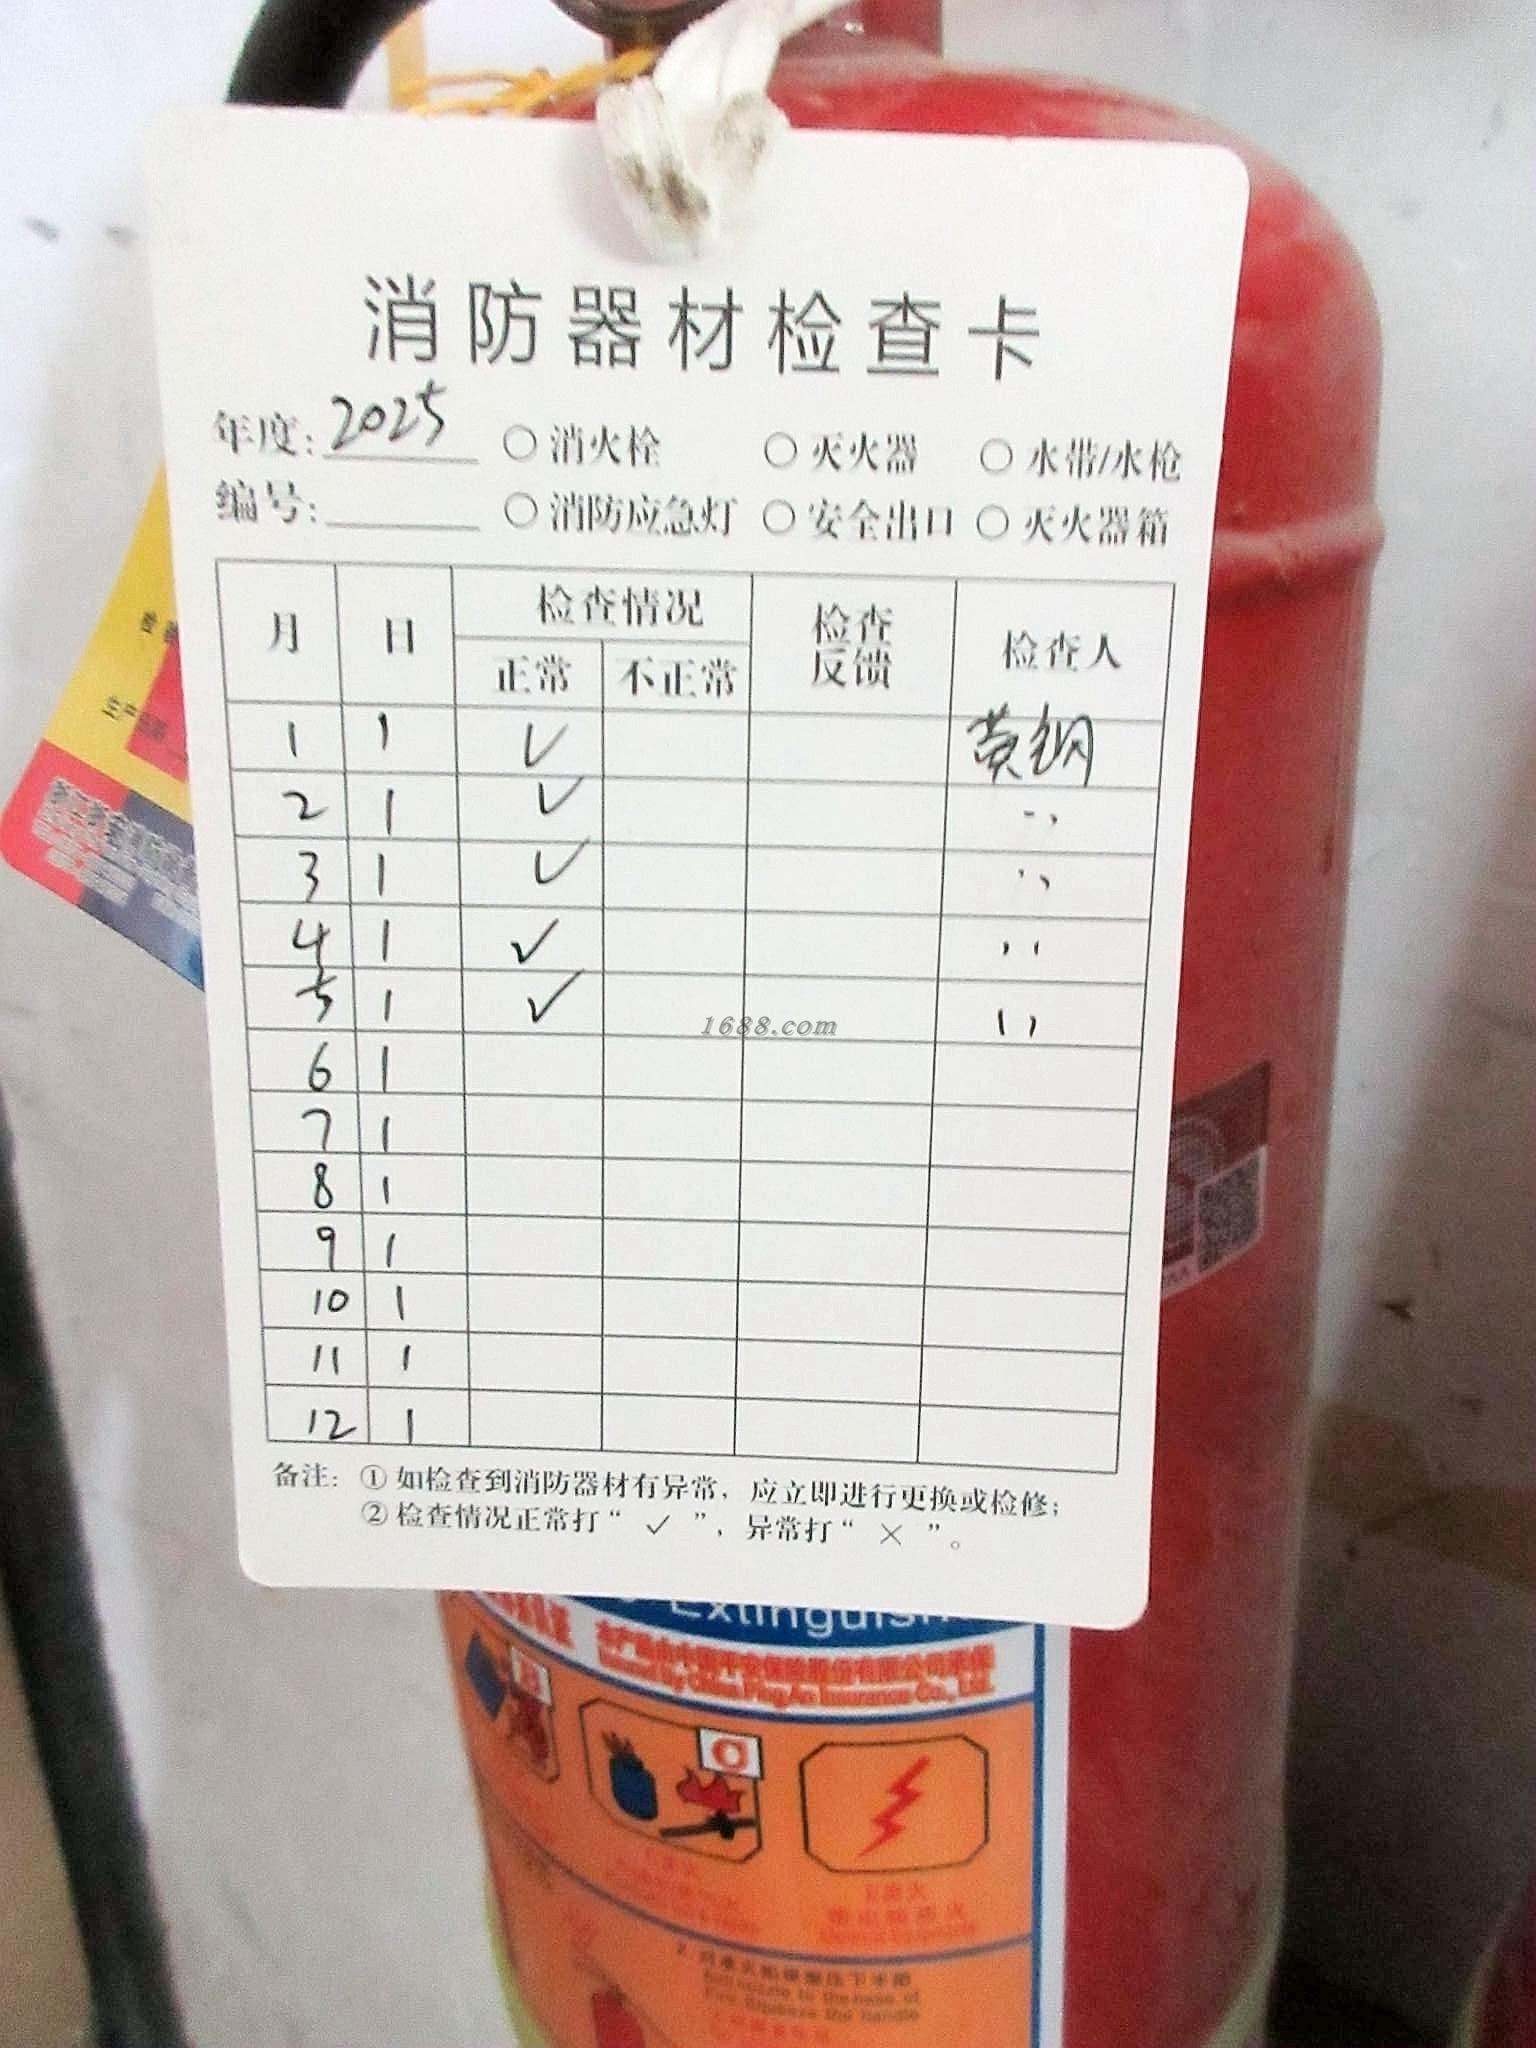 消防器材检查卡
年度: 2025 ○ 消火栓 ○ 灭火器 ○ 水带/水枪
编号: ○ 消防应急灯 ○ 安全出口 ○ 灭火器箱
月 日 检查情况 检查反馈 检查人
正常 不正常
1 1 ✓ 黄钢
2 1 ✓ 〃
3 1 ✓ 〃
4 1 ✓ 〃
5 1 ✓ 〃
6 1
7 1
8 1
9 1
10 1
11 1
12 1
备注: ① 如检查到消防器材有异常，应立即进行更换或检修;
② 检查情况正常打“ ✓ ”，异常打“ × ”。
1688.com
Extinguish
本产品由中国平安保险股份有限公司承保
Insured by China PingAn Insurance Co., Ltd.
B
C